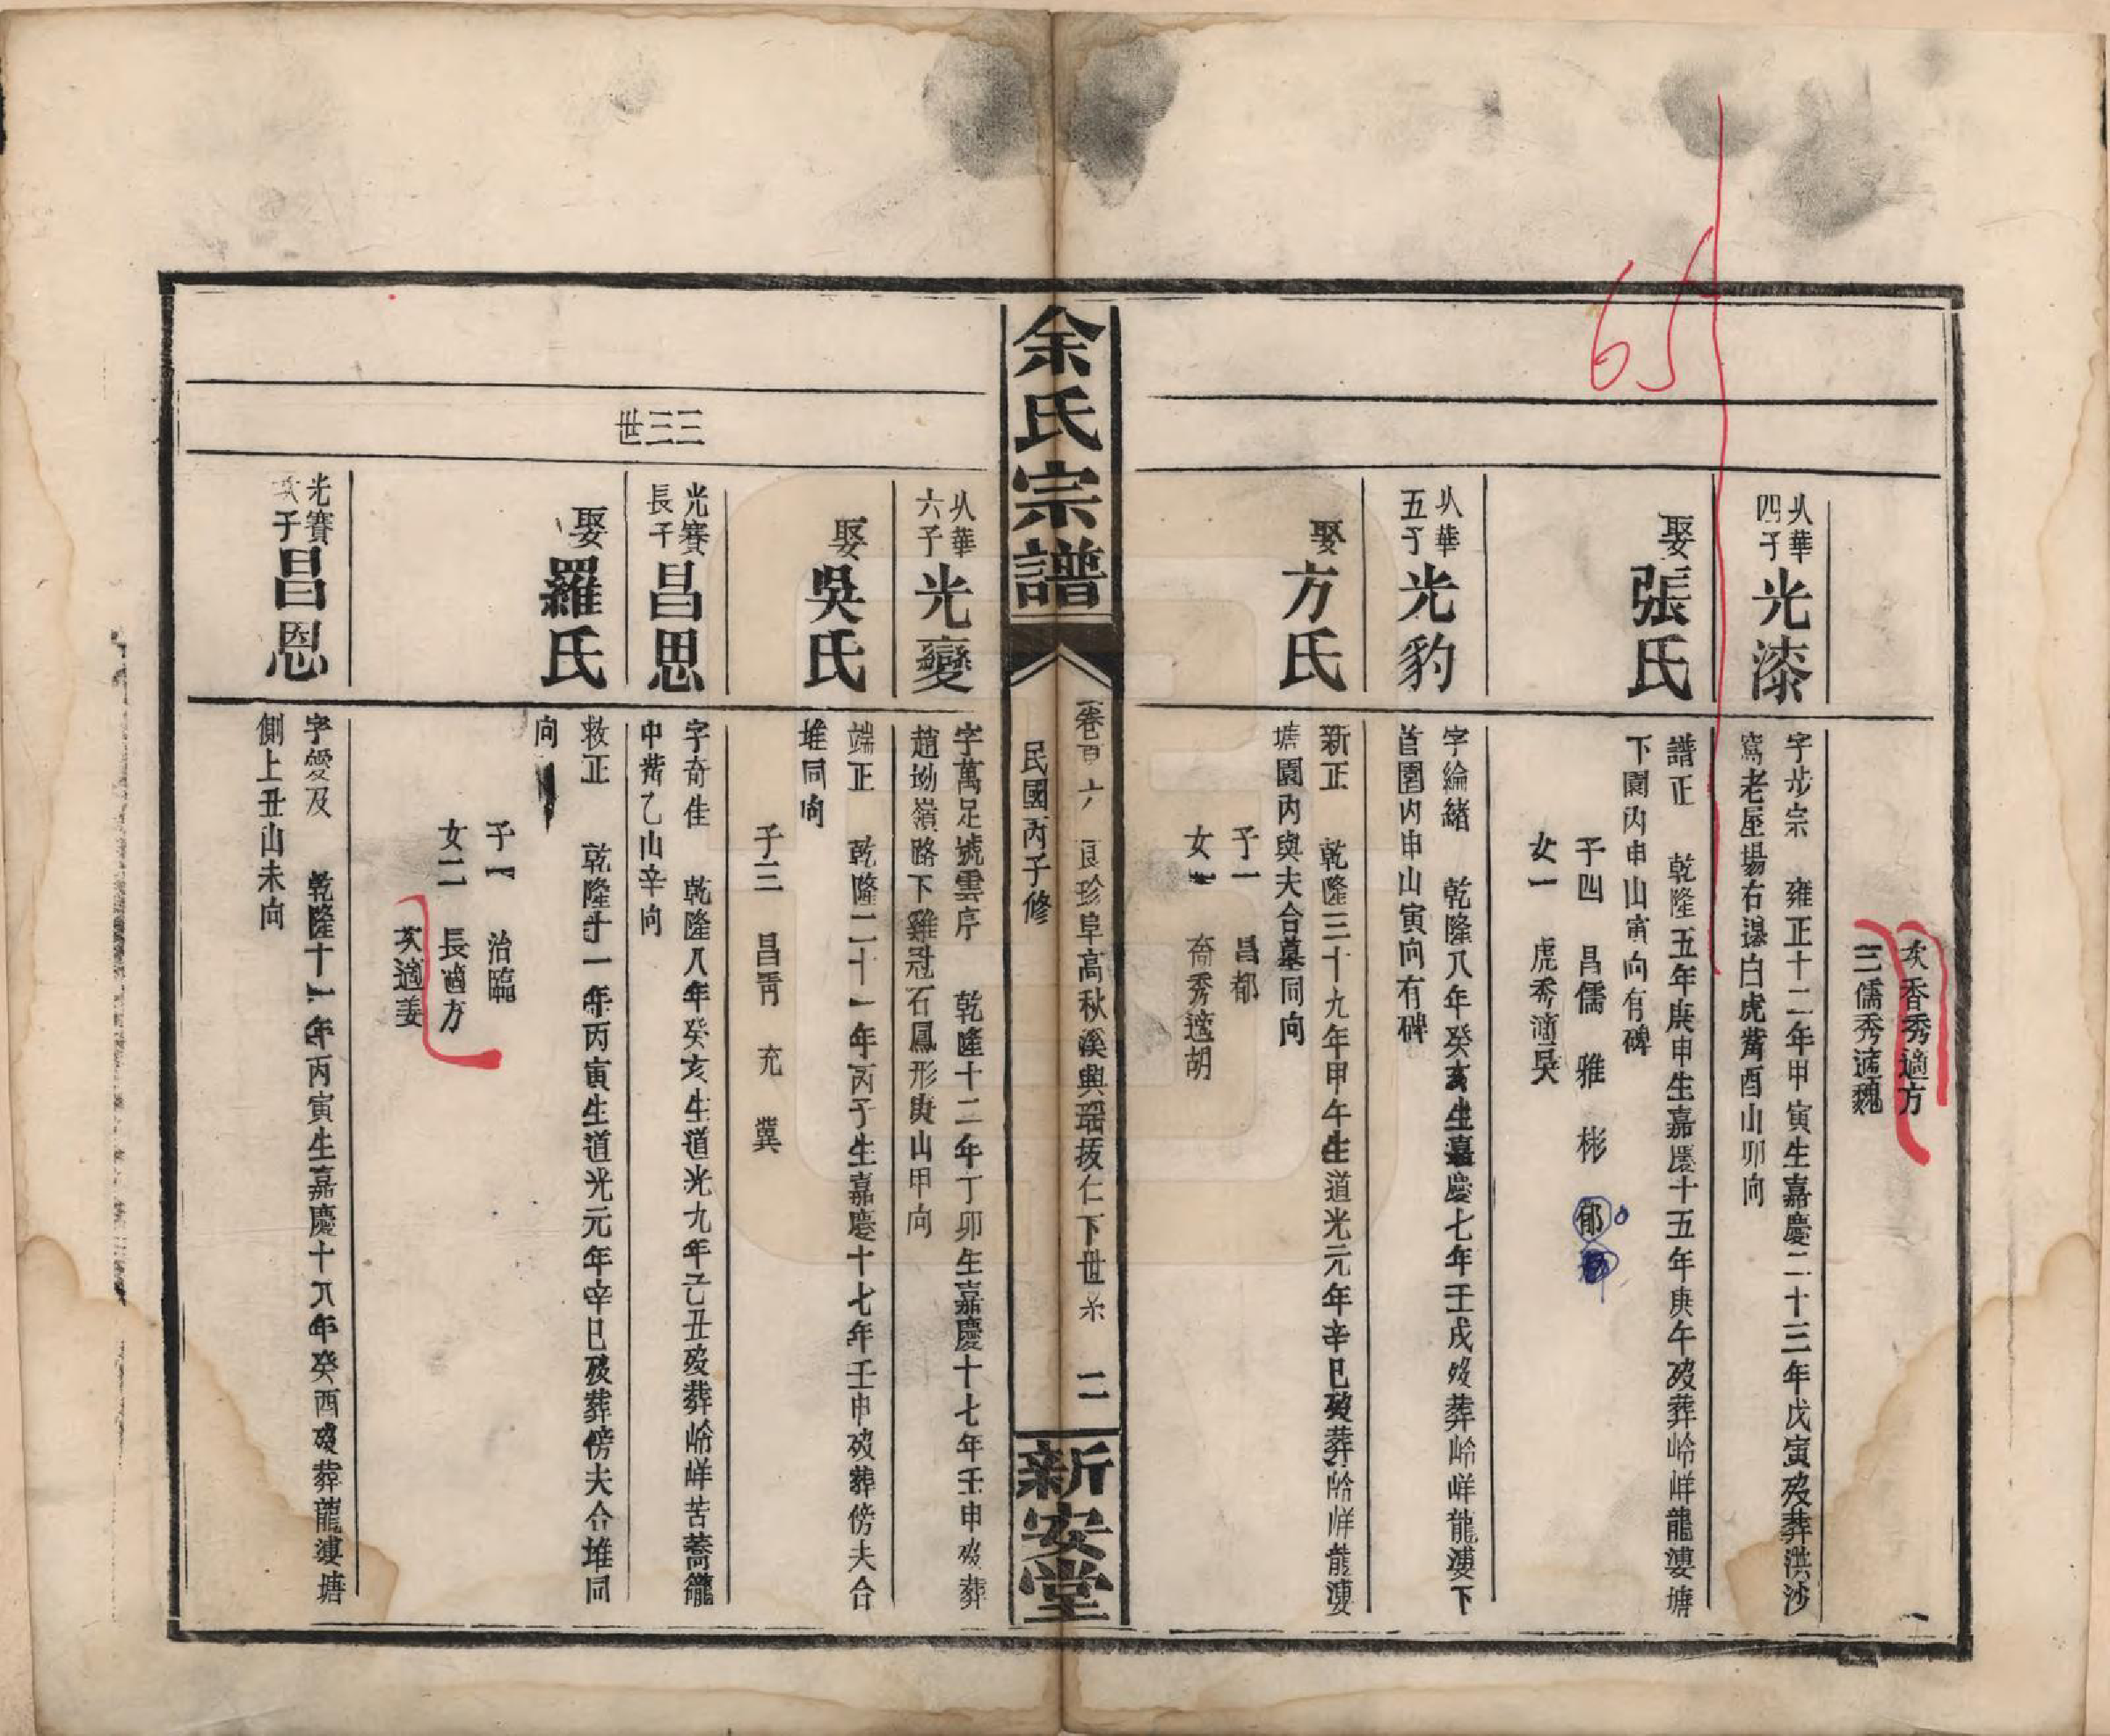 65
次香秀適方
三儒秀適魏
以華
四子
光漆
字步宗 雍正十二年甲寅生嘉慶二十三年戊寅歿葬洪沙
窩老屋塲右邊白虎嘴酉山卯向
娶張氏
譜正 乾隆五年庚申生嘉慶十五年庚午歿葬岭峰龍漊塘
下園內申山寅向有碑
子四 昌儒 雅 彬 郁
女一 虎秀適吳
以華
五子
光豹
字綸緒 乾隆八年癸亥生嘉慶七年壬戌歿葬岭峰龍漊下
首園內申山寅向有碑
娶方氏
新正 乾隆三十九年甲午生道光元年辛巳歿葬岭峰龍漊
塘園內與夫合墓同向
子一 昌都
女一 奇秀適胡
余氏宗譜
卷百六 良珍阜高秋溪與瑶拔仁下世系 二
民國丙子修
新安堂
以華
六子
光變
字萬足號雲序 乾隆十二年丁卯生嘉慶十七年壬申歿葬
趙坳嶺路下雞冠石鳳形庚山甲向
娶吳氏
端正 乾隆二十一年丙子生嘉慶十七年壬申歿葬傍夫合
堆同向
子三 昌靑 充 冀
三三世
光賽
長子
昌思
字奇佳 乾隆八年癸亥生道光九年己丑歿葬岭峰苦蕎籠
中嘴乙山辛向
娶羅氏
救正 乾隆十一年丙寅生道光元年辛巳歿葬傍夫合堆同
向
子一 治臨
女二 長適方
次適姜
光賽
次子
昌恩
字愛及 乾隆十一年丙寅生嘉慶十八年癸酉歿葬龍漊塘
側上丑山未向